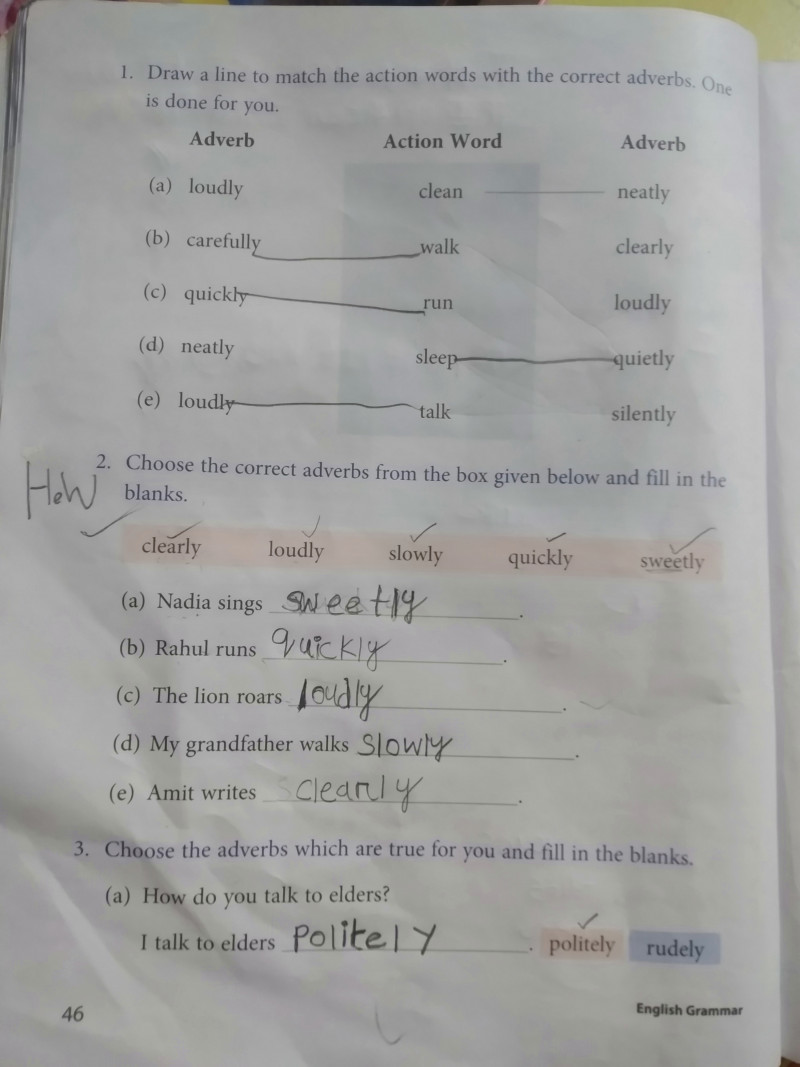 1. Draw a line to match the action words with the correct adverbs. One
is done for you.
Adverb Action Word Adverb
(a) loudly clean neatly
(b) carefully walk clearly
(c) quickly run loudly
(d) neatly sleep quietly
(e) loudly talk silently
HoW
2. Choose the correct adverbs from the box given below and fill in the
blanks.
clearly loudly slowly quickly sweetly
(a) Nadia sings sweetly.
(b) Rahul runs quickly.
(c) The lion roars loudly.
(d) My grandfather walks Slowly.
(e) Amit writes clearly.
3. Choose the adverbs which are true for you and fill in the blanks.
(a) How do you talk to elders?
I talk to elders Politely. politely rudely
46 English Grammar